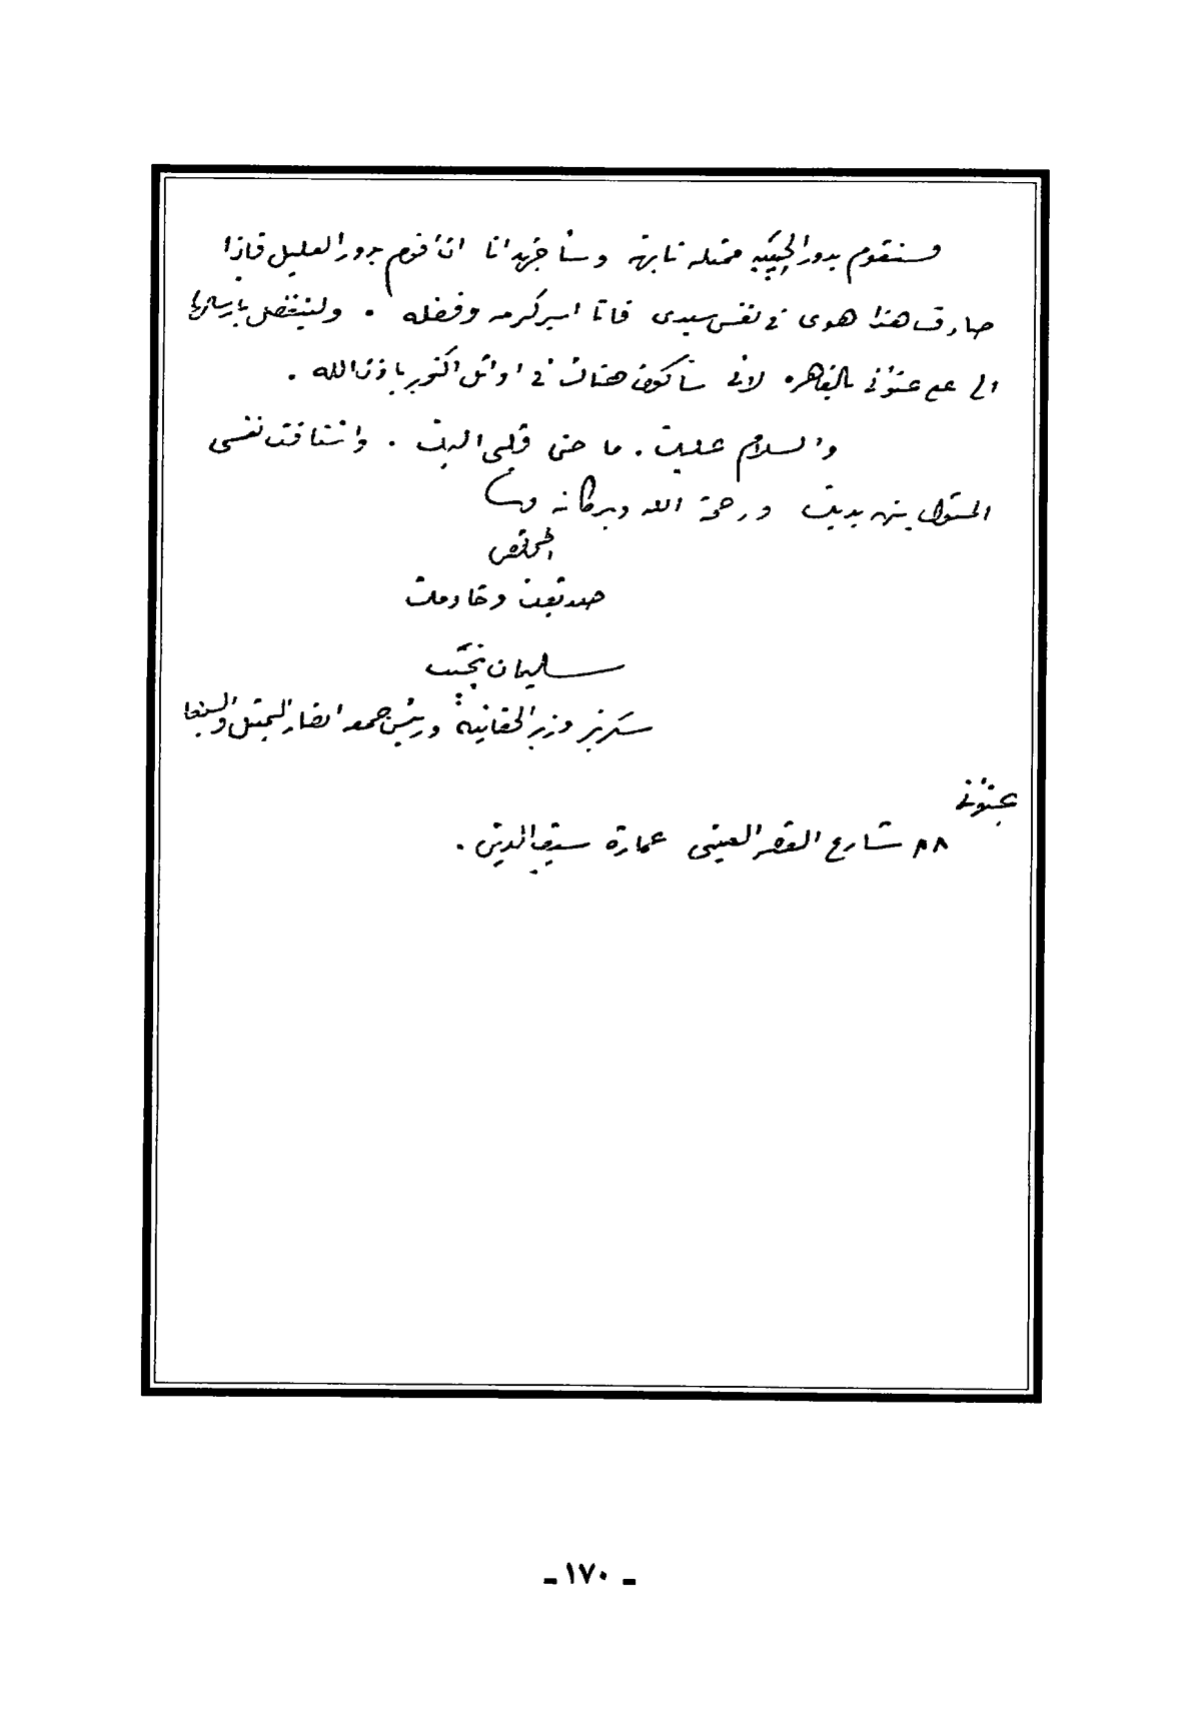 وستقوم بدور الحبيبه ممثله نابهة وسأجتهد انا ان أقوم بدور العليل فاذا
صادف هذا هوى في نفس سيدى فانا اسير كرمه وفضله . وليتفضل بارسالها
الى على عنوانى بالقاهره لانى سأكون هناك في اوائل اكتوبر باذن الله .
والسلام عليك . ما حن قلبى اليك . واشتاقت نفسى
المثول بين يديك ورحمة الله وبركاته
المخلص
صديقك وخادمك
سليمان نجيب
سكرتير وزير الحقانية ورئيس جمعية انصار التمثيل والسينما
عنوانى
٨٨ شارع القصر العينى عمارة سيف الدين .
ـ ١٧٠ ـ